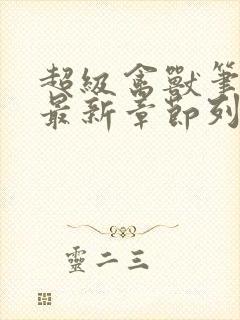 超級禽獸筆
最新章節列
靈二三